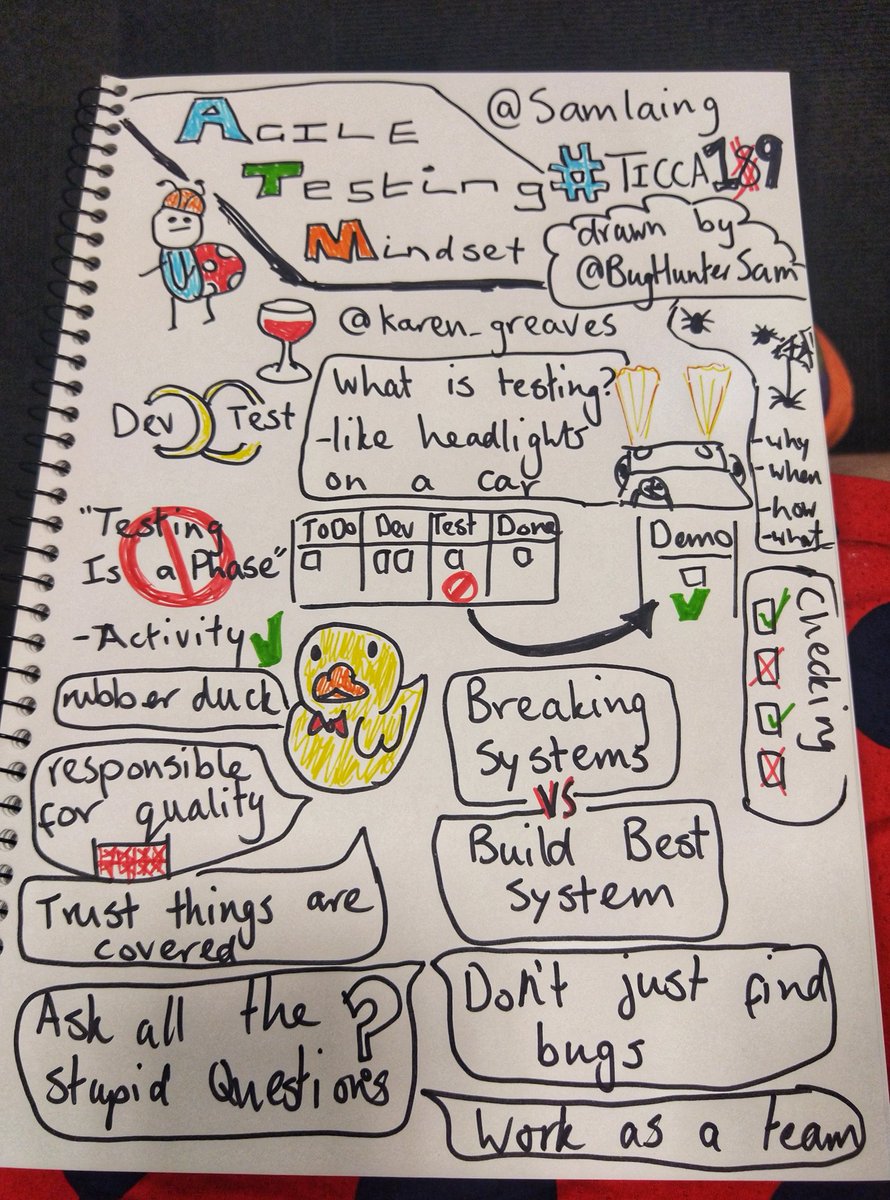 Agile
Testing
Mindset
@Samlaing
#TICCA19
drawn by
@BugHunterSam
@karen_greaves
Dev Test
What is testing?
-like headlights
on a car
-why
-when
-how
-what
"Testing
Is a Phase"
-Activity
ToDo Dev Test Done
Demo
Checking
rubber duck
responsible
for quality
Trust things are
covered
Ask all the
stupid Questions
?
Breaking
Systems
VS
Build Best
System
Don't just find
bugs
Work as a team